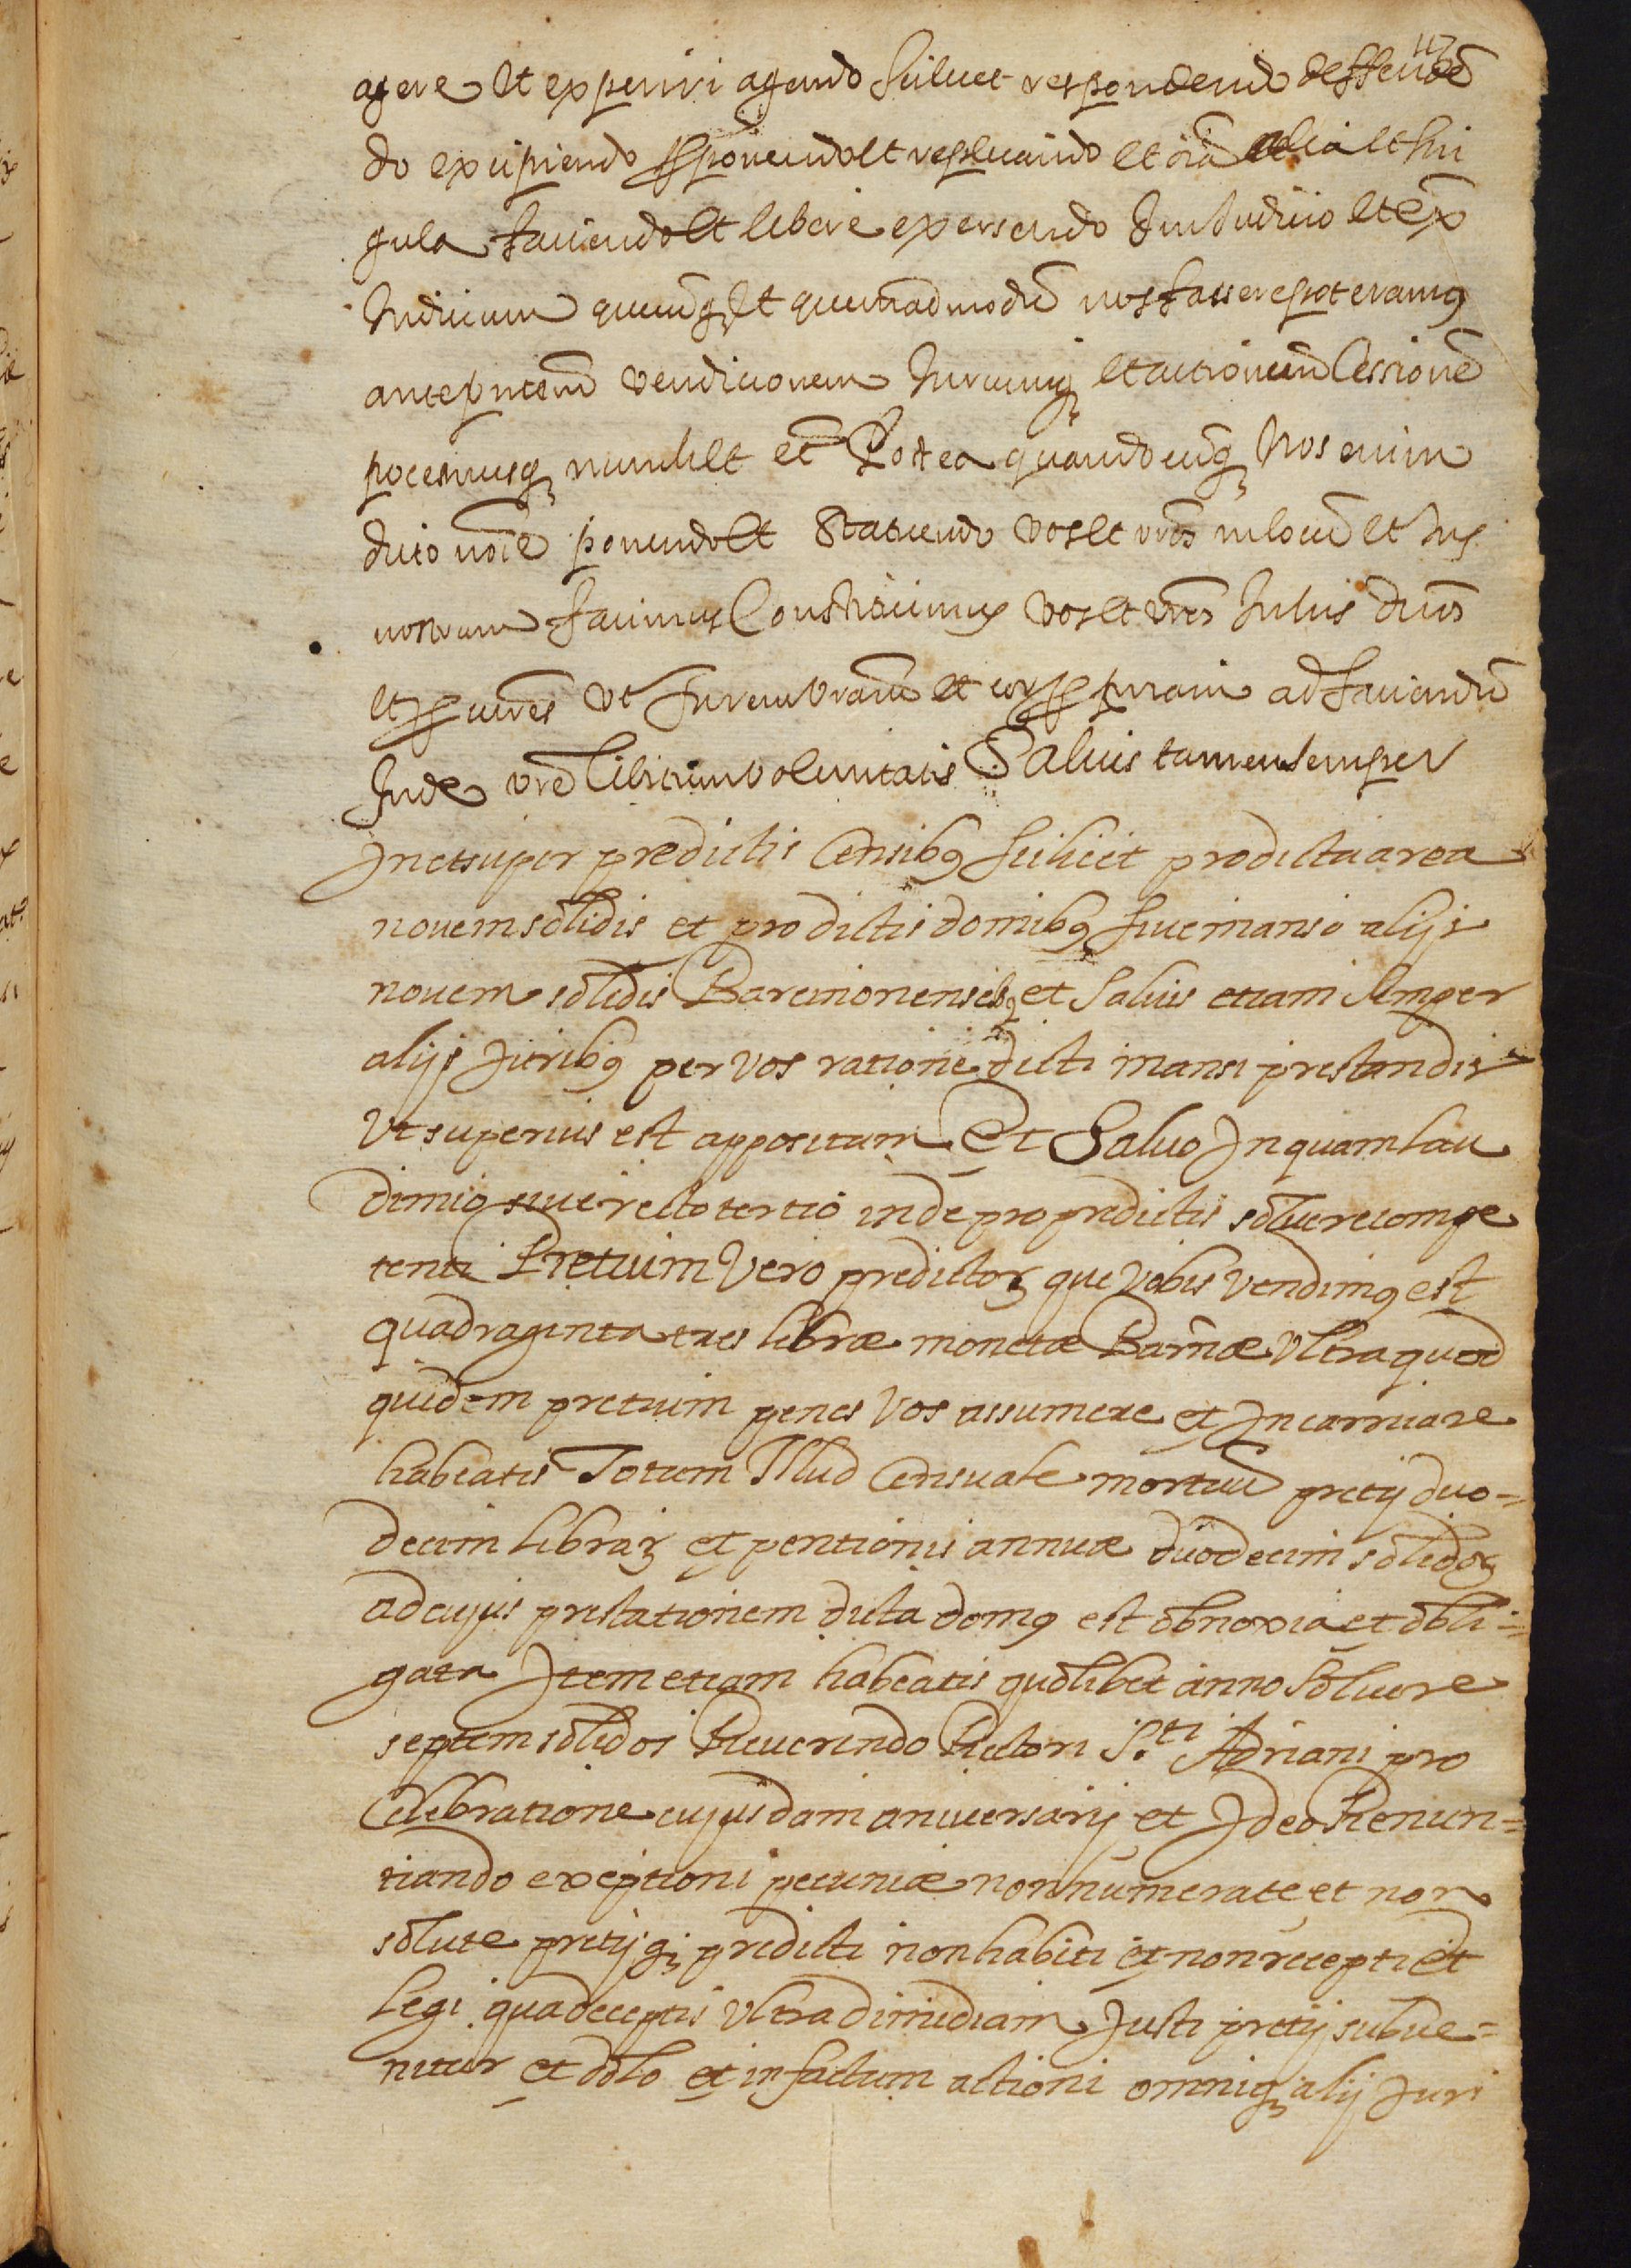 117
agere et experiri agendo scilicet respondendo deffendē
do excipiendo proponendo et replicando et oīa alia et sin
gula faciendo et libere exersendo In Judicio et ex
Judicium quecūq₃ et quemadmodū nos facere poteramꝰ
ante pntem̄ vendicionem Juriumq₃ et actionum Cessionē
possemusq₃ nunc et et̄ Postea quandocūq₃ Nos enim
dicto noīe ponendo et Statuendo vos et vr̄os in locū et Jus
nostrum facimus Constituimus vos et vr̄os In his dn̄os
et p̱cur̄es vt In rem vram̄ et vos p̱priam ad faciendū
Inde vr̄e libitum voluntatis Saluis tamen semper
In et super predictis Censibꝰ scilicet pro dicta area
nouem solidis et pro dictis domibꝰ siue manso alijs
nouem solidis Barcinonensibꝰ et Saluis etiam semper
alijs Juribꝰ per vos ratione dicti mansi prestandis
Vt superius est appositum Et Saluo Inquam lau
dimio siue recto tertio inde pro predictis soluere compe
tenti Pretium Vero predictoꝝ que Vobis Vendimꝰ est
quadraginta tres libræ monetæ Barñæ Vltra quod
quidem pretium penes Vos assumere et Incarricare
habeatis Totum Illud Censuale mortuū pretij duo=
decim libraꝝ et pentionis annuæ duodecim solidoꝝ
ad cujus prestationem dicta domꝰ est obnoxia et obli=
gata Item etiam habeatis quolibet anno Soluere
septem solidos Reuerendo Rectori S.ti Adriani pro
Celebratione cujusdam aniuersarij et Ideo Renun=
tiando exeptioni pecuniæ non numerate et non
solute pretijq₃ predicti non habiti et non recepti et
legi qua deceptis Vltra dimidiam Justi pretij subue=
nitur et dolo et in factum actioni omniq₃ alij Juri